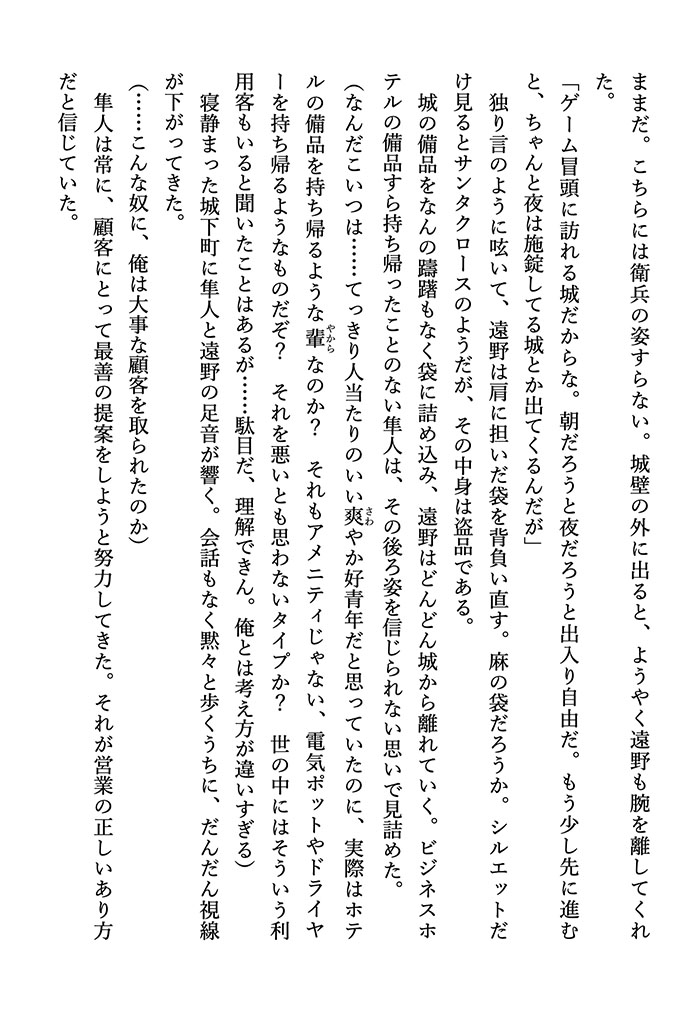 ままだ。こちらには衛兵の姿すらない。城壁の外に出ると、ようやく遠野も腕を離してくれ
た。
「ゲーム冒頭に訪れる城だからな。朝だろうと夜だろうと出入り自由だ。もう少し先に進む
と、ちゃんと夜は施錠してる城とか出てくるんだが」
　独り言のように呟いて、遠野は肩に担いだ袋を背負い直す。麻の袋だろうか。シルエットだ
け見るとサンタクロースのようだが、その中身は盗品である。
　城の備品をなんの躊躇もなく袋に詰め込み、遠野はどんどん城から離れていく。ビジネスホ
テルの備品すら持ち帰ったことのない隼人は、その後ろ姿を信じられない思いで見詰めた。
（なんだこいつは……てっきり人当たりのいい爽さわやか好青年だと思っていたのに、実際はホテ
ルの備品を持ち帰るような輩やからなのか？　それもアメニティじゃない、電気ポットやドライヤ
ーを持ち帰るようなものだぞ？　それを悪いとも思わないタイプか？　世の中にはそういう利
用客もいると聞いたことはあるが……駄目だ、理解できん。俺とは考え方が違いすぎる）
　寝静まった城下町に隼人と遠野の足音が響く。会話もなく黙々と歩くうちに、だんだん視線
が下がってきた。
（……こんな奴に、俺は大事な顧客を取られたのか）
　隼人は常に、顧客にとって最善の提案をしようと努力してきた。それが営業の正しいあり方
だと信じていた。